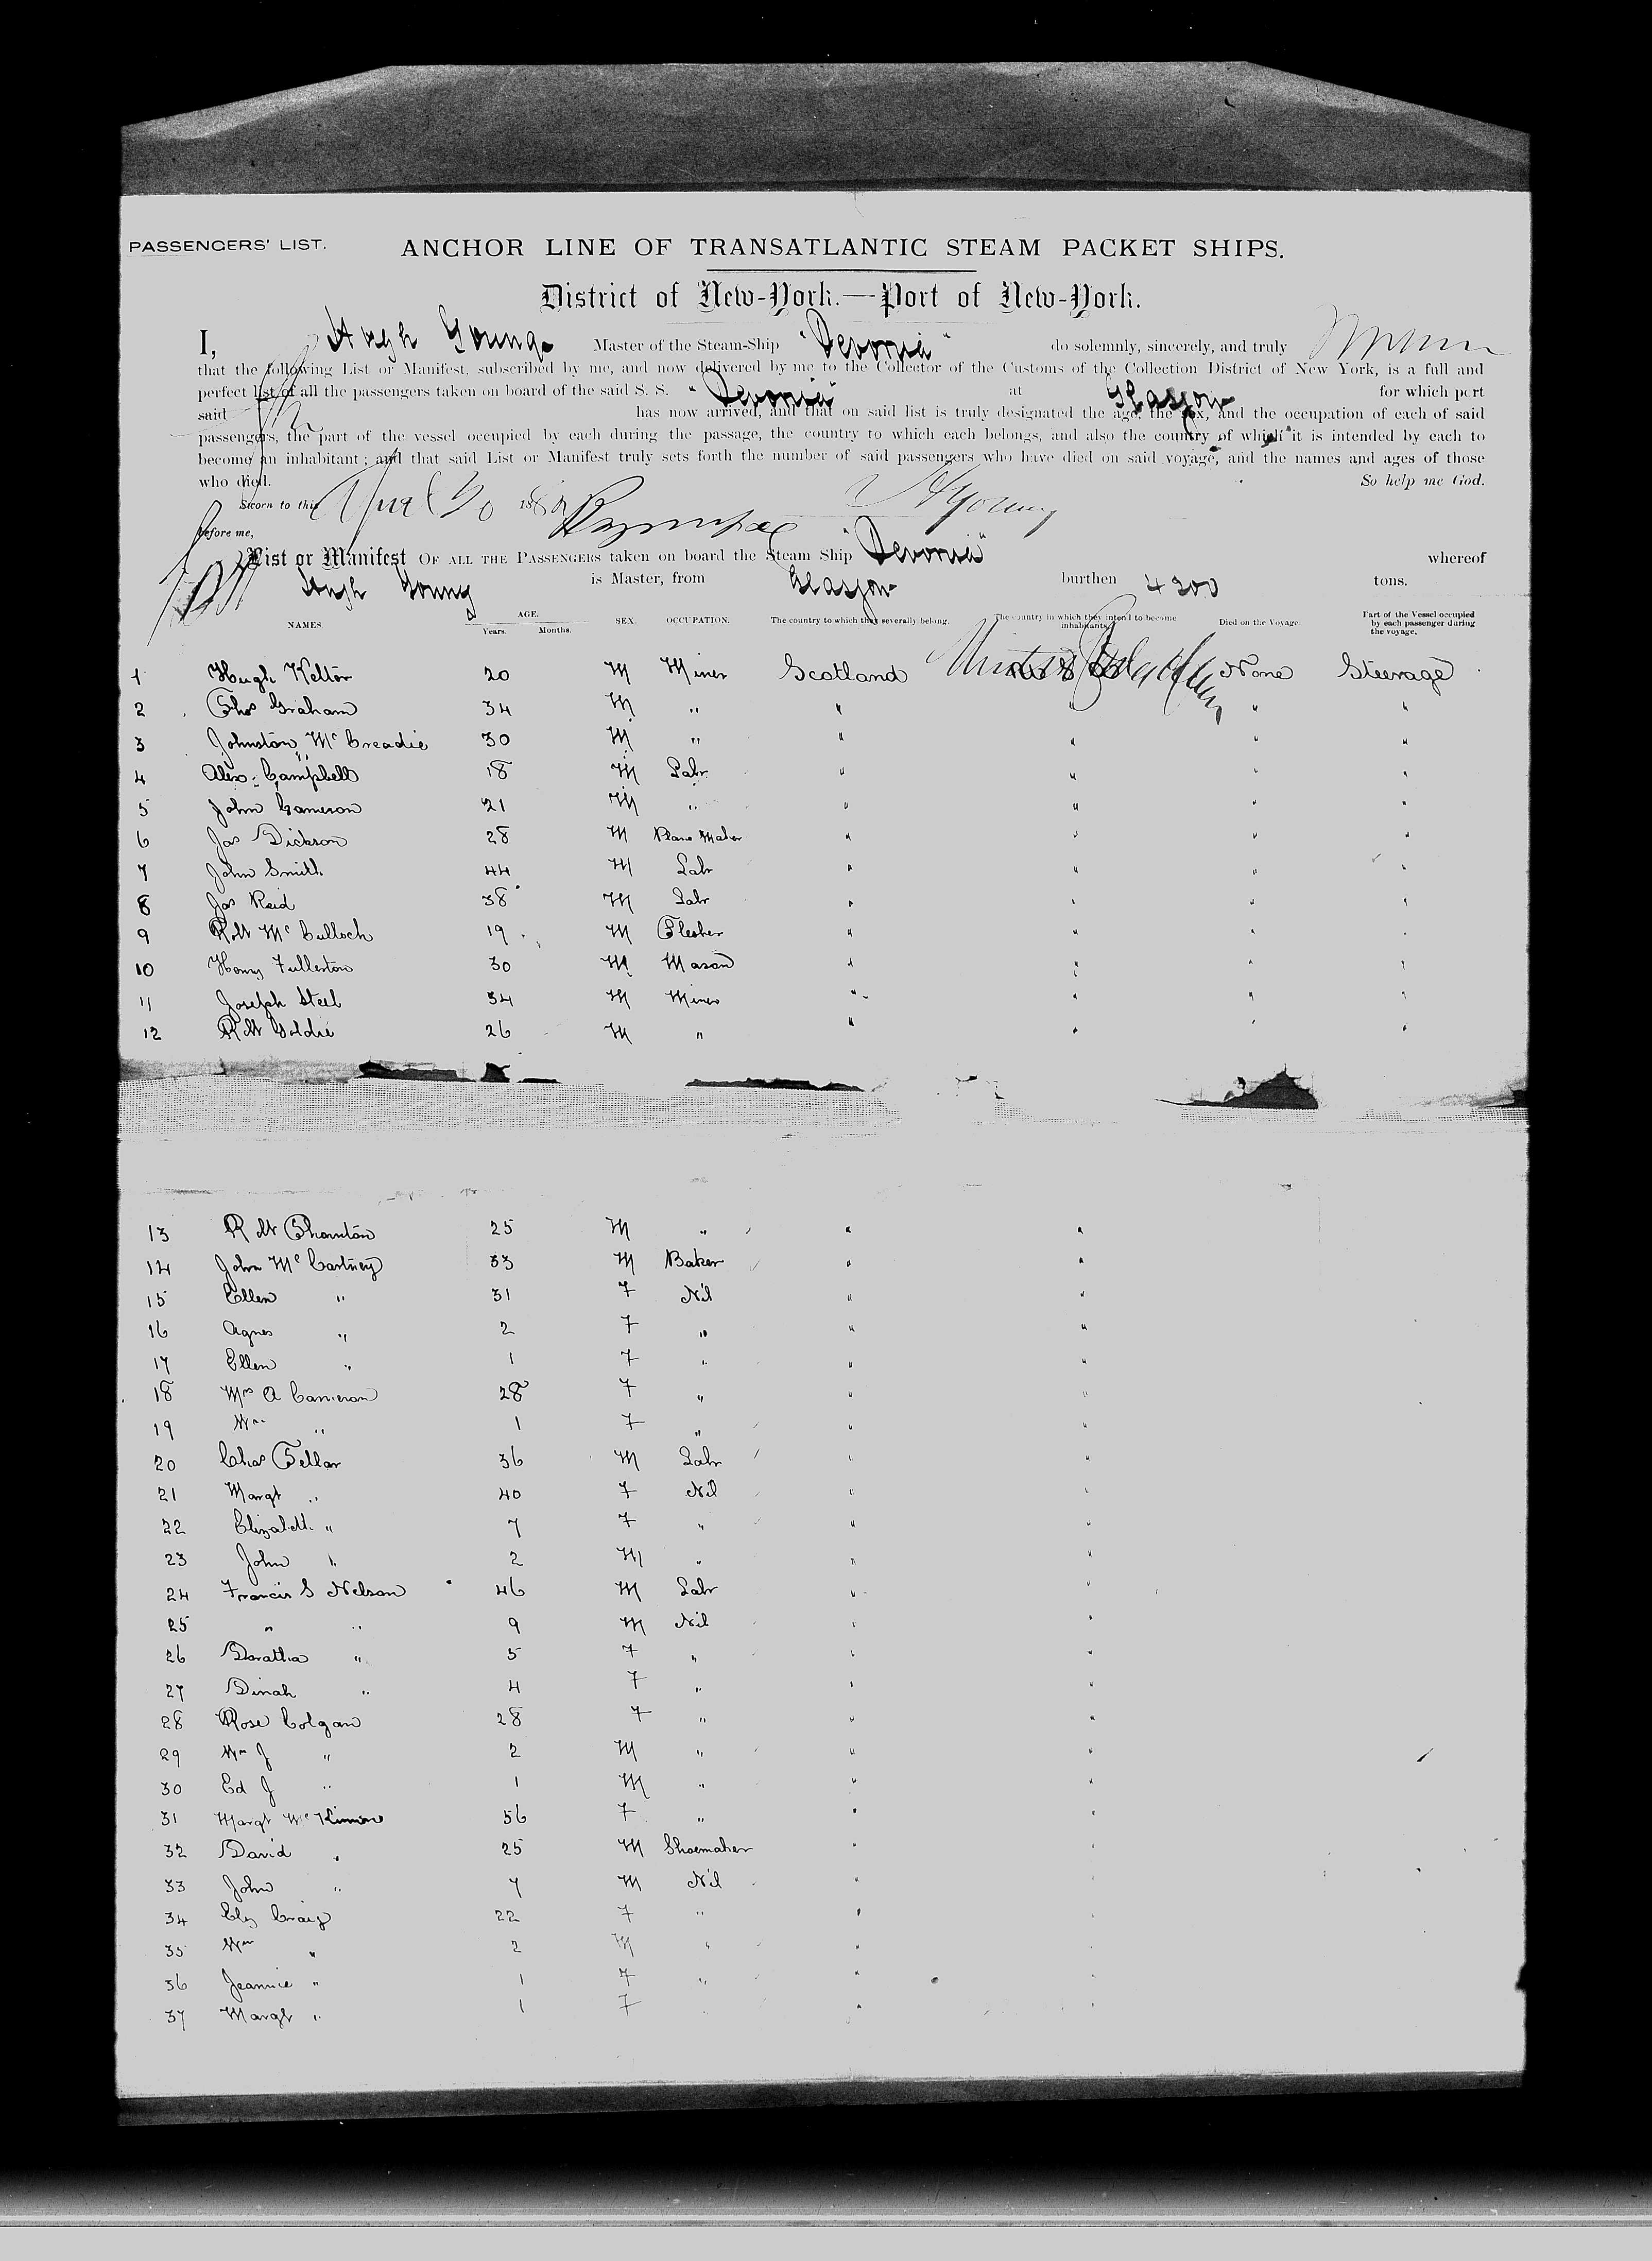 PASSENGERS' LIST. ANCHOR LINE OF TRANSATLANTIC STEAM PACKET SHIPS.
District of New-York.—Port of New-York.
I, Hugh Young Master of the Steam-Ship "Devonia" do solemnly, sincerely, and truly
that the following List or Manifest, subscribed by me, and now delivered by me to the Collector of the Customs of the Collection District of New York, is a full and
perfect list of all the passengers taken on board of the said S. S. "Devonia" at Glasgow for which port
said has now arrived, and that on said list is truly designated the age, the sex, and the occupation of each of said
passengers, the part of the vessel occupied by each during the passage, the country to which each belongs, and also the country of which it is intended by each to
become an inhabitant; and that said List or Manifest truly sets forth the number of said passengers who have died on said voyage, and the names and ages of those
who died. So help me God.
Sworn to this 188 HYoung
before me,
List or Manifest OF ALL THE PASSENGERS taken on board the Steam Ship "Devonia" whereof
Hugh Young is Master, from Glasgow burthen 4200 tons.
NAMES. AGE. Years. Months. SEX. OCCUPATION. The country to which they severally belong. The country in which they intend to become inhabitants. Died on the Voyage. Part of the Vessel occupied by each passenger during the voyage,
1 Hugh Kelton 20 M Miner Scotland United States None Steerage
2 Thos Graham 34 M " " " " "
3 Johnston McCreadie 30 M " " " " "
4 Alex: Campbell 18 M Labr " " " "
5 John Cameron 21 M " " " " "
6 Jas Dickson 28 M Plane Maker " " " "
7 John Smith 44 M Labr " " " "
8 Jas Reid 38 M Labr " " " "
9 Robt McCulloch 19 M Flesher " " " "
10 Henry Fullerton 30 M Mason " " " "
11 Joseph Steel 34 M Miner " " " "
12 Robt Goldie 26 M " " " " "
13 Robt Thornton 25 M " " "
14 John McCartney 33 M Baker " "
15 Ellen " 31 F Nil " "
16 Agnes " 2 F " " "
17 Ellen " 1 F " " "
18 Mrs A Cameron 28 F " " "
19 Wm " 1 F " " "
20 Chas Tellar 36 M Labr " "
21 Margt " 40 F Nil " "
22 Elizabeth " 7 F " " "
23 John " 2 M " " "
24 Francis S Nelson 46 M Labr " "
25 " " 9 M Nil " "
26 Doratha " 5 F " " "
27 Dinah " 4 F " " "
28 Rose Colgan 28 F " " "
29 Wm J " 2 M " " "
30 Ed J " 1 M " " "
31 Margt McKinnon 56 F " " "
32 David " 25 M Shoemaker " "
33 John " 7 M Nil " "
34 Eliz Craig 22 F " " "
35 Wm " 2 M " " "
36 Jeannie " 1 F " " "
37 Margt " 1 F " " "